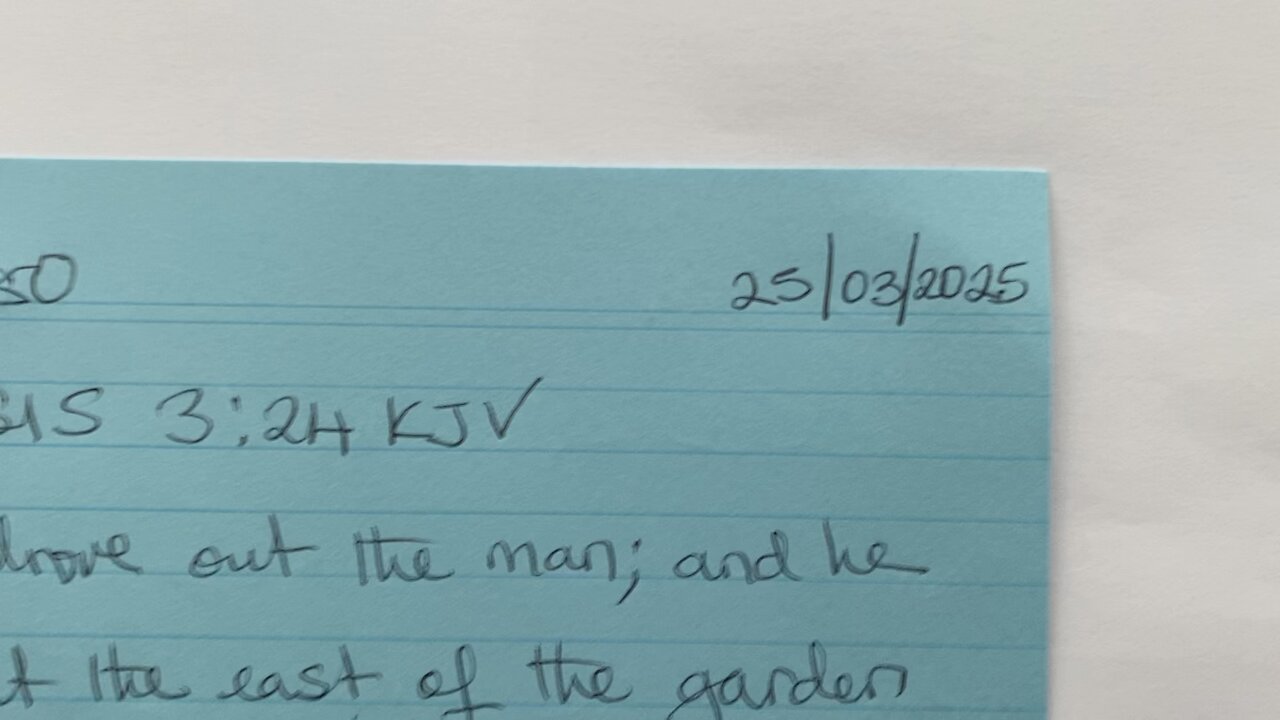 50 25/03/2025
SIS 3:24 KJV
drove out the man; and he
t the east of the garden